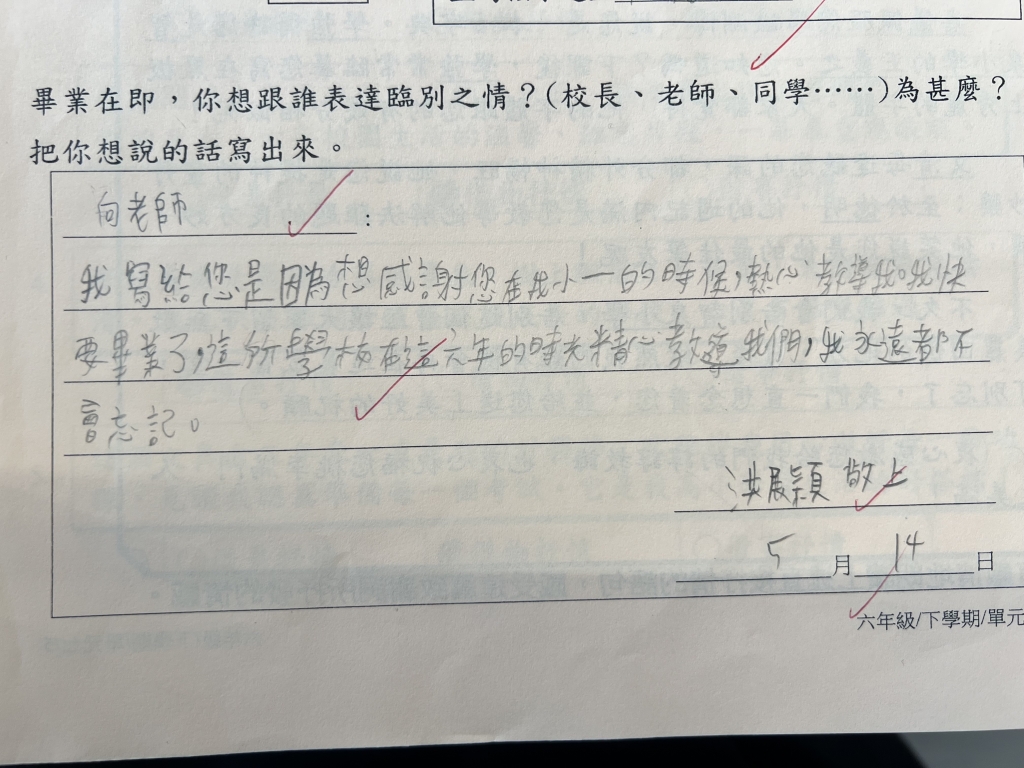 畢業在即，你想跟誰表達臨別之情？(校長、老師、同學……)為甚麼？
把你想說的話寫出來。
向老師：
我寫給您是因為想感謝您在我小一的時候，熱心教導我。我快
要畢業了，這份學校在這六年的時光精心教導我們，我永遠都不
會忘記。
洪展穎 敬上
5月14日
六年級/下學期/單元